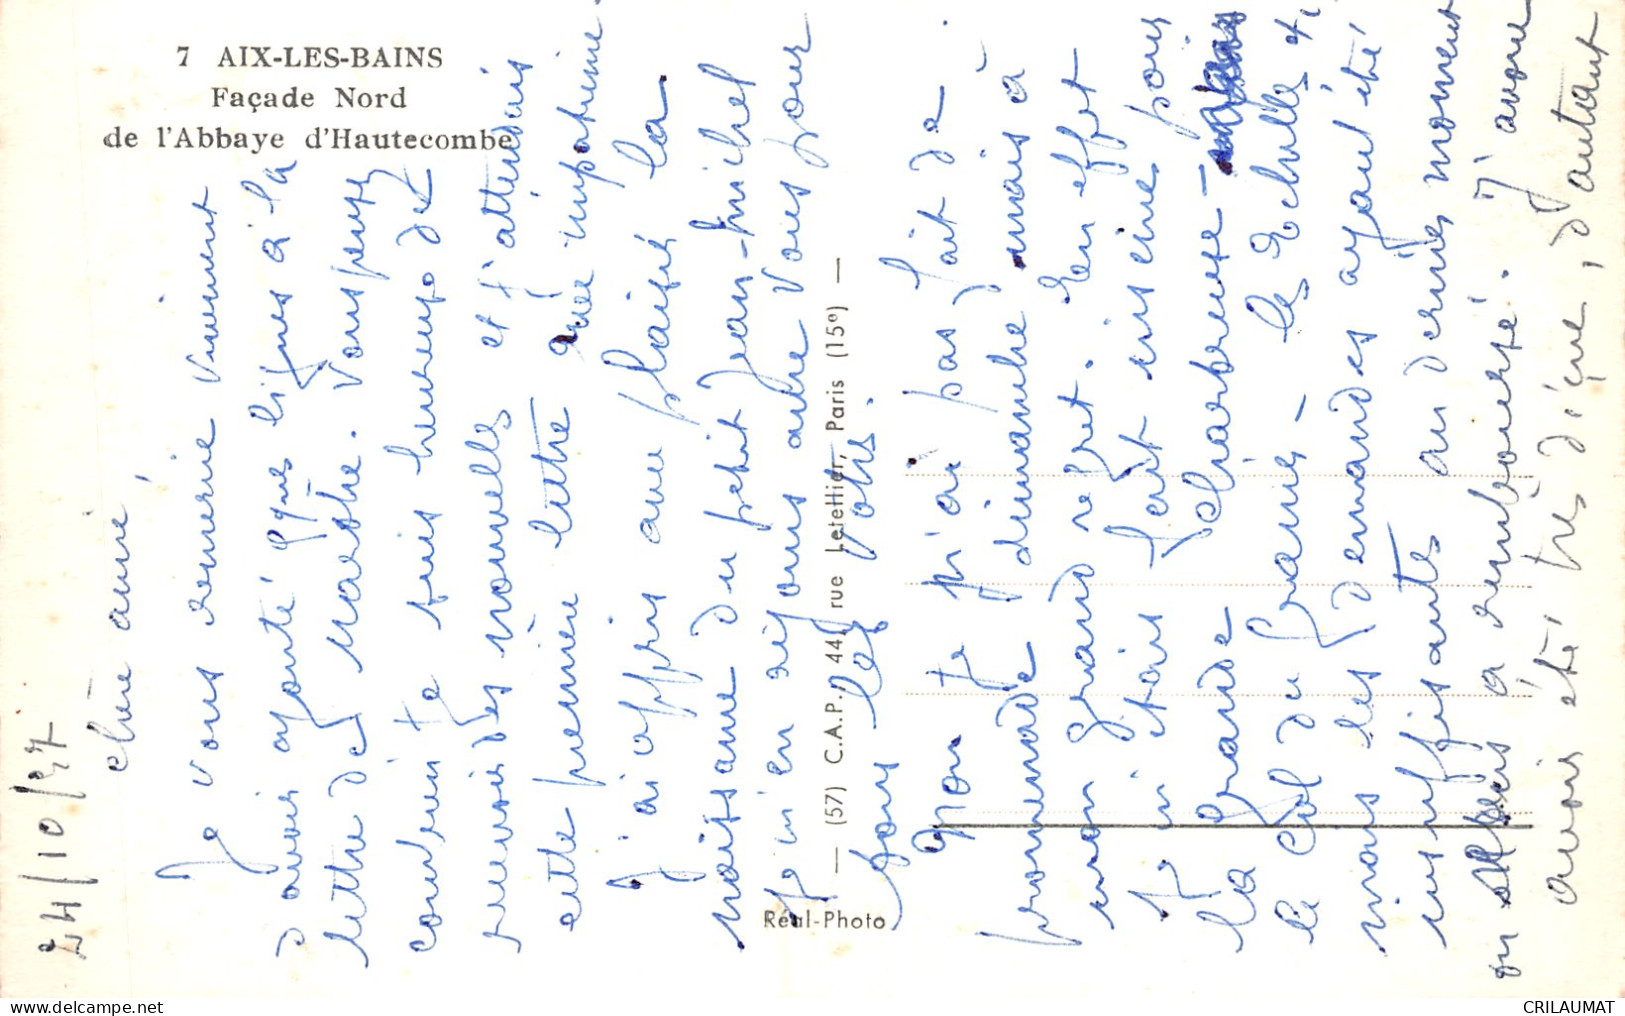 7 AIX-LES-BAINS
Façade Nord
de l'Abbaye d'Hautecombe
24/10/57
chère amie,
Je vous remercie vivement
d'avoir ajouté qques lignes à la
lettre de Marthe. Vous
combien je suis heureux de
recevoir des nouvelles et j'attendais
cette première lettre avec impatience.
J'ai appris avec plaisir la
naissance du petit Jean-Michel
Je m'en réjouis autre Vous pour
vous les
Non je n'ai pas fait de
promenade dimanche mais à
mon grand regret. En effet
je m'étais fait inscrire pour
la Grande Chartreuse -
le Col du Granier - les Echelles etc
mais les demandes ayant été
insuffisantes au dernier moment
on a remboursé. J'avoue
avoir été très déçue, d'autant
— (57) C.A.P. 44, rue Letellier, Paris (15e) —
Réal-Photo
CRILAUMAT